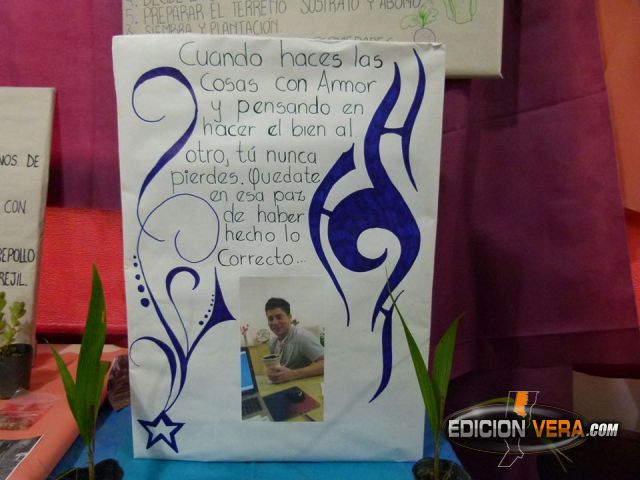 PREPARAR EL TERRENO SUSTRATO Y ABONO
SIEMBRA Y PLANTACION
Cuando haces las
Cosas con Armor
y pensando en
hacer el bien al
otro, tú nunca
pierdes. Quedate
en esa paz
de haber
hecho lo
Correcto...
NOS DE
CON
REPOLLO
REJIL.
EDICION VERA.COM